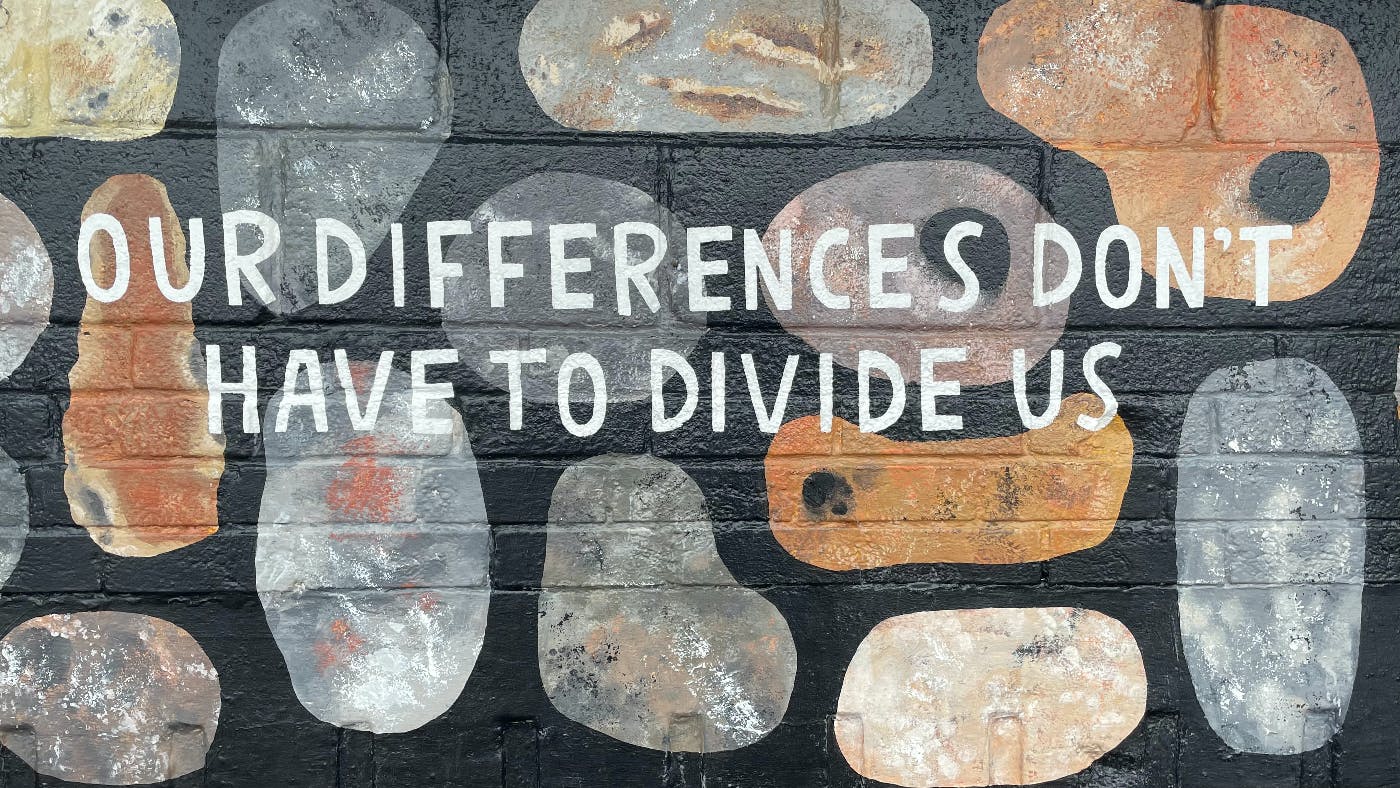 OUR DIFFERENCES DON'T
HAVE TO DIVIDE US